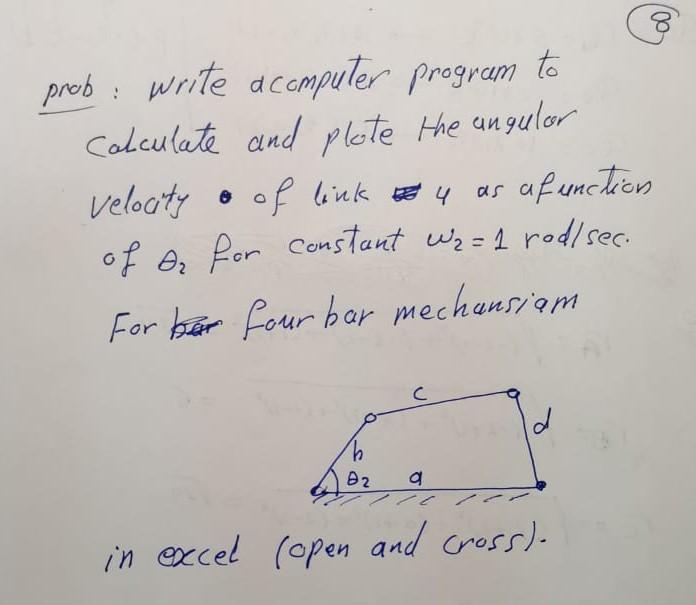 8
prob : write a computer program to
Calculate and plote the angular
velocity of link 4 as a function
of θ₂ for constant ω₂ = 1 rad/sec.
For four bar mechansiam
c
d
b
θ₂ a
in excel (open and cross).